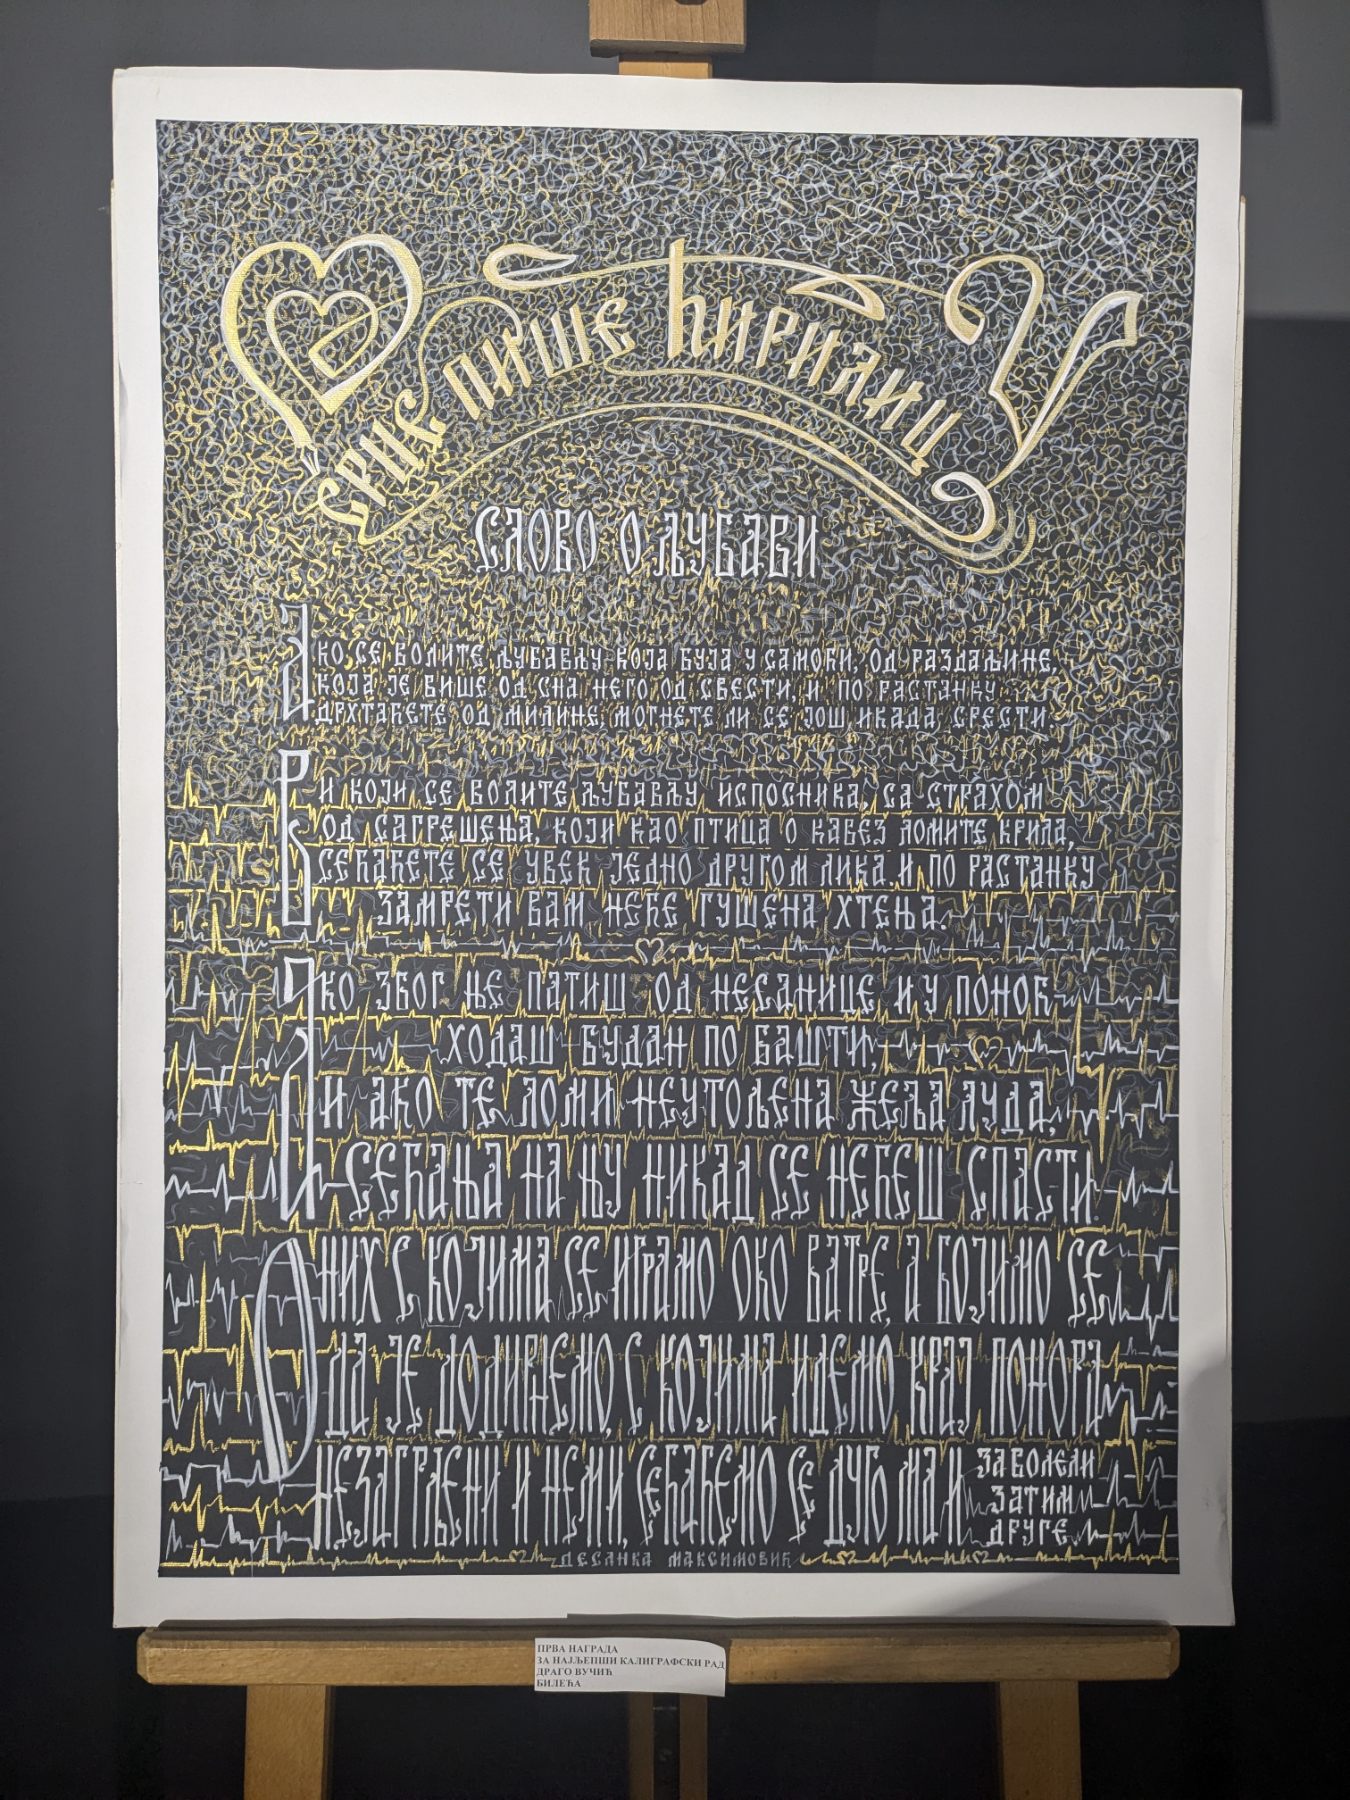 Срце пише ћирилицу
СЛОВО О ЉУБАВИ
АКО СЕ ВОЛИТЕ ЉУБАВЉУ КОЈА БУЈА У САМОЋИ, ОД РАЗДАЉИНЕ,
КОЈА ЈЕ ВИШЕ ОД СНА НЕГО ОД СВЕСТИ, И ПО РАСТАНКУ
ДРХТАЋЕТЕ ОД МИЛИНЕ, МОГНЕТЕ ЛИ СЕ ЈОШ ИКАДА СРЕСТИ.
ВИ КОЈИ СЕ ВОЛИТЕ ЉУБАВЉУ ИСПОСНИКА, СА СТРАХОМ
ОД САГРЕШЕЊА, КОЈИ КАО ПТИЦА О КАВЕЗ ЛОМИТЕ КРИЛА,
СЕЋАЋЕТЕ СЕ УВЕК ЈЕДНО ДРУГОМ ЛИКА. И ПО РАСТАНКУ
ЗАМРЕТИ ВАМ НЕЋЕ ГУШЕНА ХТЕЊА.
АКО ЗБОГ ЊЕ ПАТИШ ОД НЕСАНИЦЕ И У ПОНОЋ
ХОДАШ БУДАН ПО БАШТИ,
И АКО ТЕ ЛОМИ НЕУТОЉЕНА ЖЕЉА ЛУДА,
СЕЋАЊА НА ЊУ НИКАД СЕ НЕЋЕШ СПАСТИ.
ОНИХ С КОЈИМА СЕ ИГРАМО ОКО ВАТРЕ, А БОЈИМО СЕ
ДА ЈЕ ДОДИРНЕМО, С КОЈИМА ИДЕМО КРАЈ ПОНОРА
НЕЗАГРЉЕНИ И НЕМИ, СЕЋАЋЕМО СЕ ДУГО МА И ЗАВОЛЕЛИ
ЗАТИМ
ДРУГЕ
ДЕСАНКА МАКСИМОВИЋ
ПРВА НАГРАДА
ЗА НАЈЉЕПШИ КАЛИГРАФСКИ РАД
ДРАГО ВУЧИЋ
БИЛЕЋА